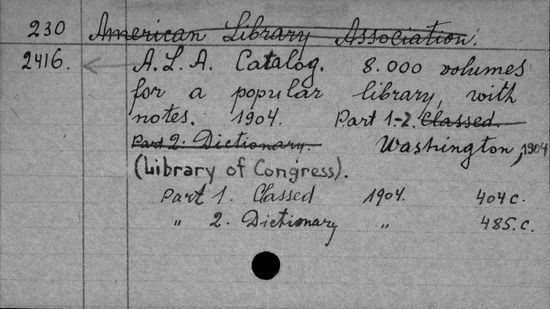 230 American Library Association.
2416. A.L.A. Catalog. 8.000 volumes
for a popular library, with
notes. 1904. Part 1-2. Classed.
Part 2. Dictionary. Washington, 1904
(Library of Congress).
Part 1. Classed 1904. 404 c.
" 2. Dictionary " 485. c.